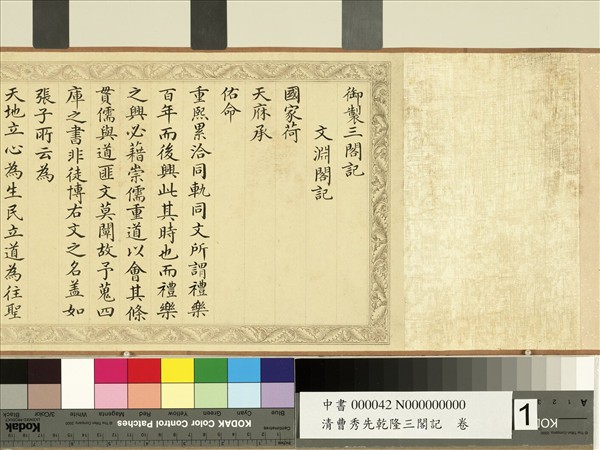 御製三閣記
文淵閣記
國家荷
天庥承
佑命
重熙累洽同軌同文所謂禮樂
百年而後興此其時也而禮樂
之興必藉崇儒重道以會其條
貫儒與道匪文莫闡故予蒐四
庫之書非徒博右文之名蓋如
張子所云為
天地立心為生民立道為往聖
Kodak
Black
3/Color
White
Magenta
Red
Yellow
Green
Cyan
Blue
KODAK Color Control Patches
中書 000042 N000000000
清曹秀先乾隆三閣記 卷
1
A